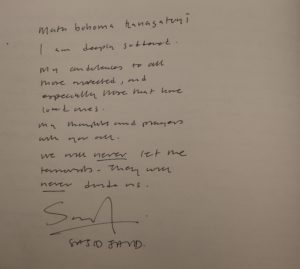 Matu bohoma kanagatuyi
I am deeply saddened.
My condolences to all
those affected, and
especially those that have
loved ones.
My thoughts and prayers
with you all.
We will never let the
terrorists - They will
never divide us.
SAJID JAVID.